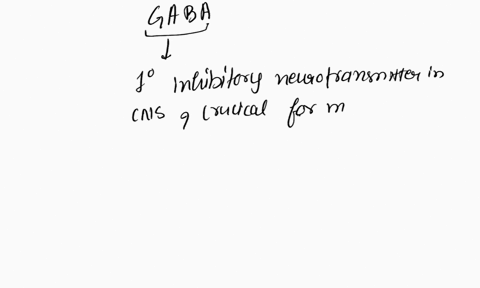 GABA
1° Inhibitory neurotransmitter in
CNS, crucial for m